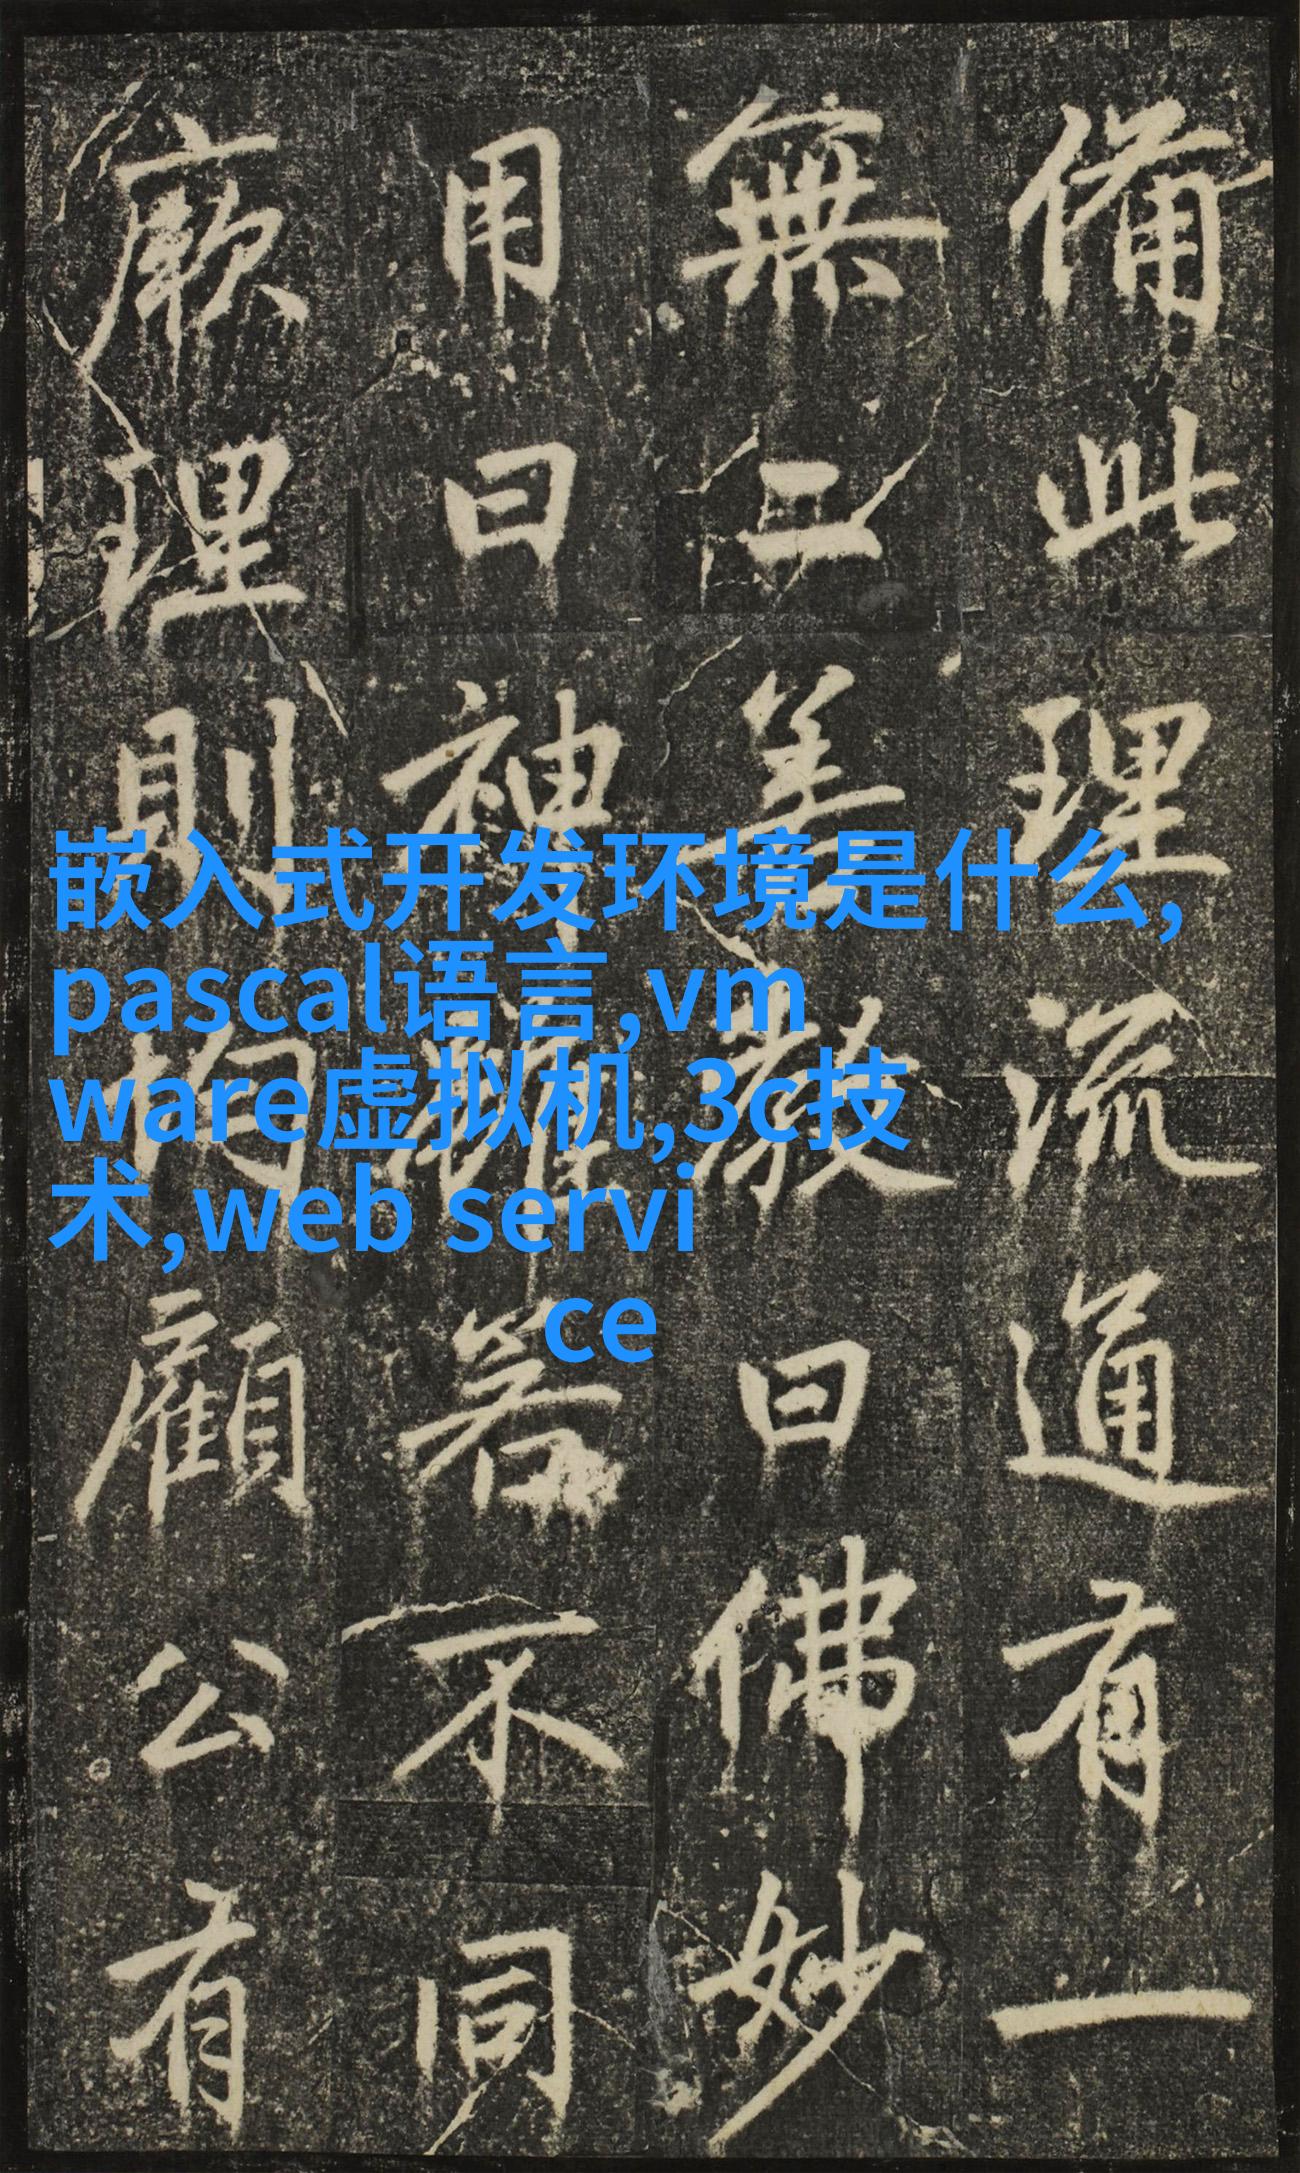 備此理流通有一
無二教曰佛妙
用曰神雖若不同
厥理則均顧公有
嵌入式开发环境是什么,
pascal语言,vm
ware虚拟机,3c技
术,web servi
ce